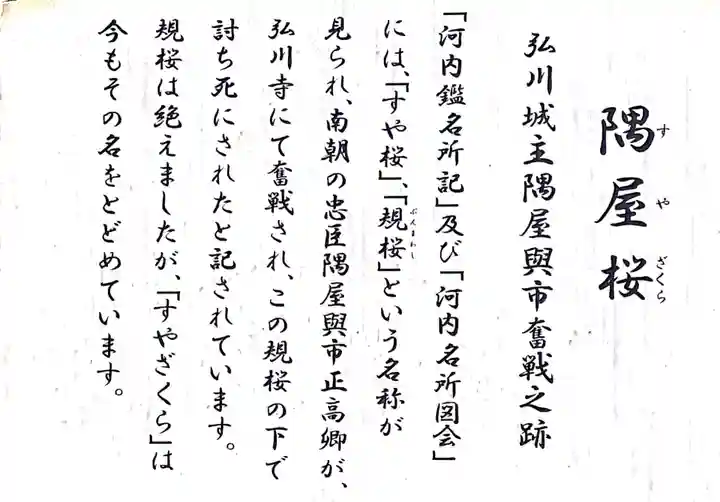 隅屋桜
すやざくら
弘川城主隅屋與市奮戦之跡
「河内鑑名所記」及び「河内名所図会」
には、「すや桜」、「規桜」という名称が
ぶんまわし
見られ、南朝の忠臣隅屋與市正高卿が、
弘川寺にて奮戦され、この規桜の下で
討ち死にされたと記されています。
規桜は絶えましたが、「すやざくら」は
今もその名をとどめています。